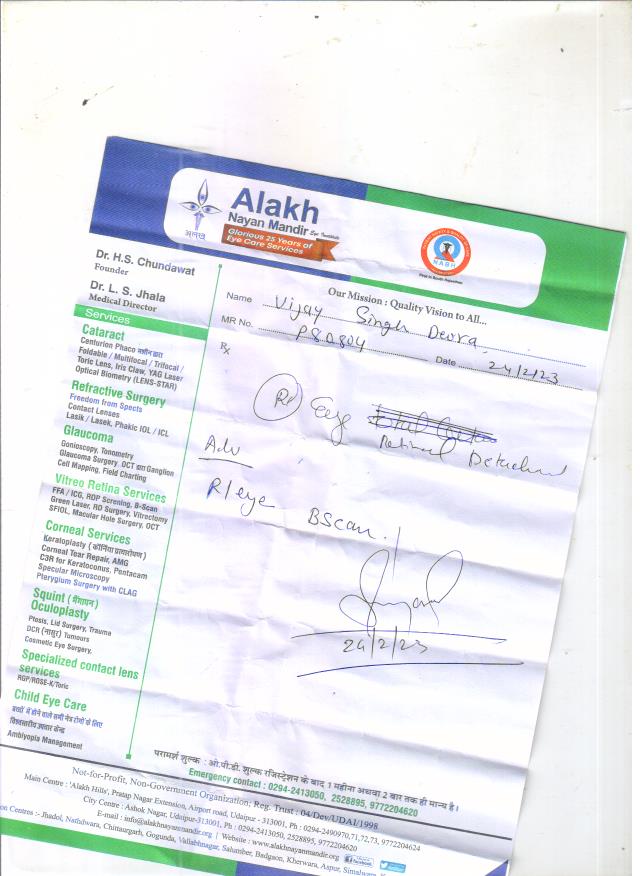 Alakh
Nayan Mandir Eye Institute
अलख
Glorious 25 Years of
Eye Care Services
NABH
Dr. H.S. Chundawat
Founder
Dr. L. S. Jhala
Medical Director
Our Mission : Quality Vision to All...
Name Vijay Singh Deora
MR No. P80804 Date 24/2/23
Rx
Services
Cataract
Centurion Phaco मशीन द्वारा
Foldable / Multifocal / Trifocal /
Toric Lens, Iris Claw, YAG Laser
Optical Biometry (LENS-STAR)
Refractive Surgery
Freedom from Spects
Contact Lenses
Lasik / Lasek, Phakic IOL / ICL
Glaucoma
Gonioscopy, Tonometry
Glaucoma Surgery, OCT द्वारा Ganglion
Cell Mapping, Field Charting
Vitreo Retina Services
FFA / ICG, ROP Screning, B-Scan
Green Laser, RD Surgery, Vitrectomy
SFIOL, Macular Hole Surgery, OCT
Corneal Services
Keraloplasty (कॉर्निया प्रत्यारोपण)
Corneal Tear Repair, AMG
C3R for Keratoconus, Pentacam
Specular Microscopy
Pterygium Surgery with CLAG
Squint (भैंगापन)
Oculoplasty
Ptosis, Lid Surgery, Trauma
DCR (नासूर) Tumours
Cosmetic Eye Surgery,
Specialized contact lens
services
RGP/ROSE-K/Toric
Child Eye Care
बच्चों में होने वाले सभी नेत्र रोगों के लिए
विश्वस्तरीय उपचार केन्द्र
Amblyopia Management
Eye
Retinal Detachment
Adv
R/eye BScan.
24/2/23
परामर्श शुल्क : ओ.पी.डी. शुल्क रजिस्ट्रेशन के बाद 1 महीना अथवा 2 बार तक ही मान्य है।
Emergency contact : 0294-2413050, 2528895, 9772204620
Not-for-Profit, Non-Government Organization; Reg. Trust : 04/Dev/UDAI/1998
Main Centre : 'Alakh Hills', Pratap Nagar Extension, Airport road, Udaipur - 313001, Ph : 0294-2490970,71,72,73, 9772204624
City Centre : Ashok Nagar, Udaipur-313001, Ph : 0294-2413050, 2528895, 9772204620
E-mail : info@alakhnayanmandir.org | Website : www.alakhnayanmandir.org
on Centres :- Jhadol, Nathdwara, Chittaurgarh, Gogunda, Vallabhnagar, Salumber, Badgaon, Kherwara, Aspur,